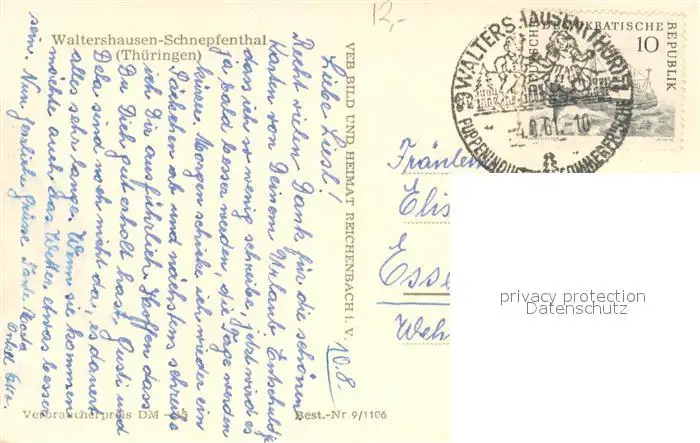 12,-
Waltershausen-Schnepfenthal
(Thüringen)
Liebe Liesl!
Recht vielen Dank für die schönen
Karten von Deinem Urlaub. Entschuldige
dass ich so wenig schreibe, jetzt wird es
ja bald besser werden, die Tage werden
kürzer. Morgen schicke ich wieder ein
Päckchen ab und nächstens schreibe
ich Dir ausführlich. Hoffen dass
Du Dich gut erholt hast, Gusti und
sind noch nicht da, es dauert
alles sehr lange. Wenn sie kommen
möchte auch das Wetter etwas besser
sein. Nun herzliche Grüsse Tante
Onkel Otto.
10.8.
VEB BILD UND HEIMAT REICHENBACH i. V.
Verbraucherpreis DM
Best.-Nr 9/1106
WALTERSHAUSEN (THÜR)
-4.8.61.-10
DEUTSCHE DEMOKRATISCHE REPUBLIK
10
Fräulein
Elis
Esse
Weh
privacy protection
Datenschutz